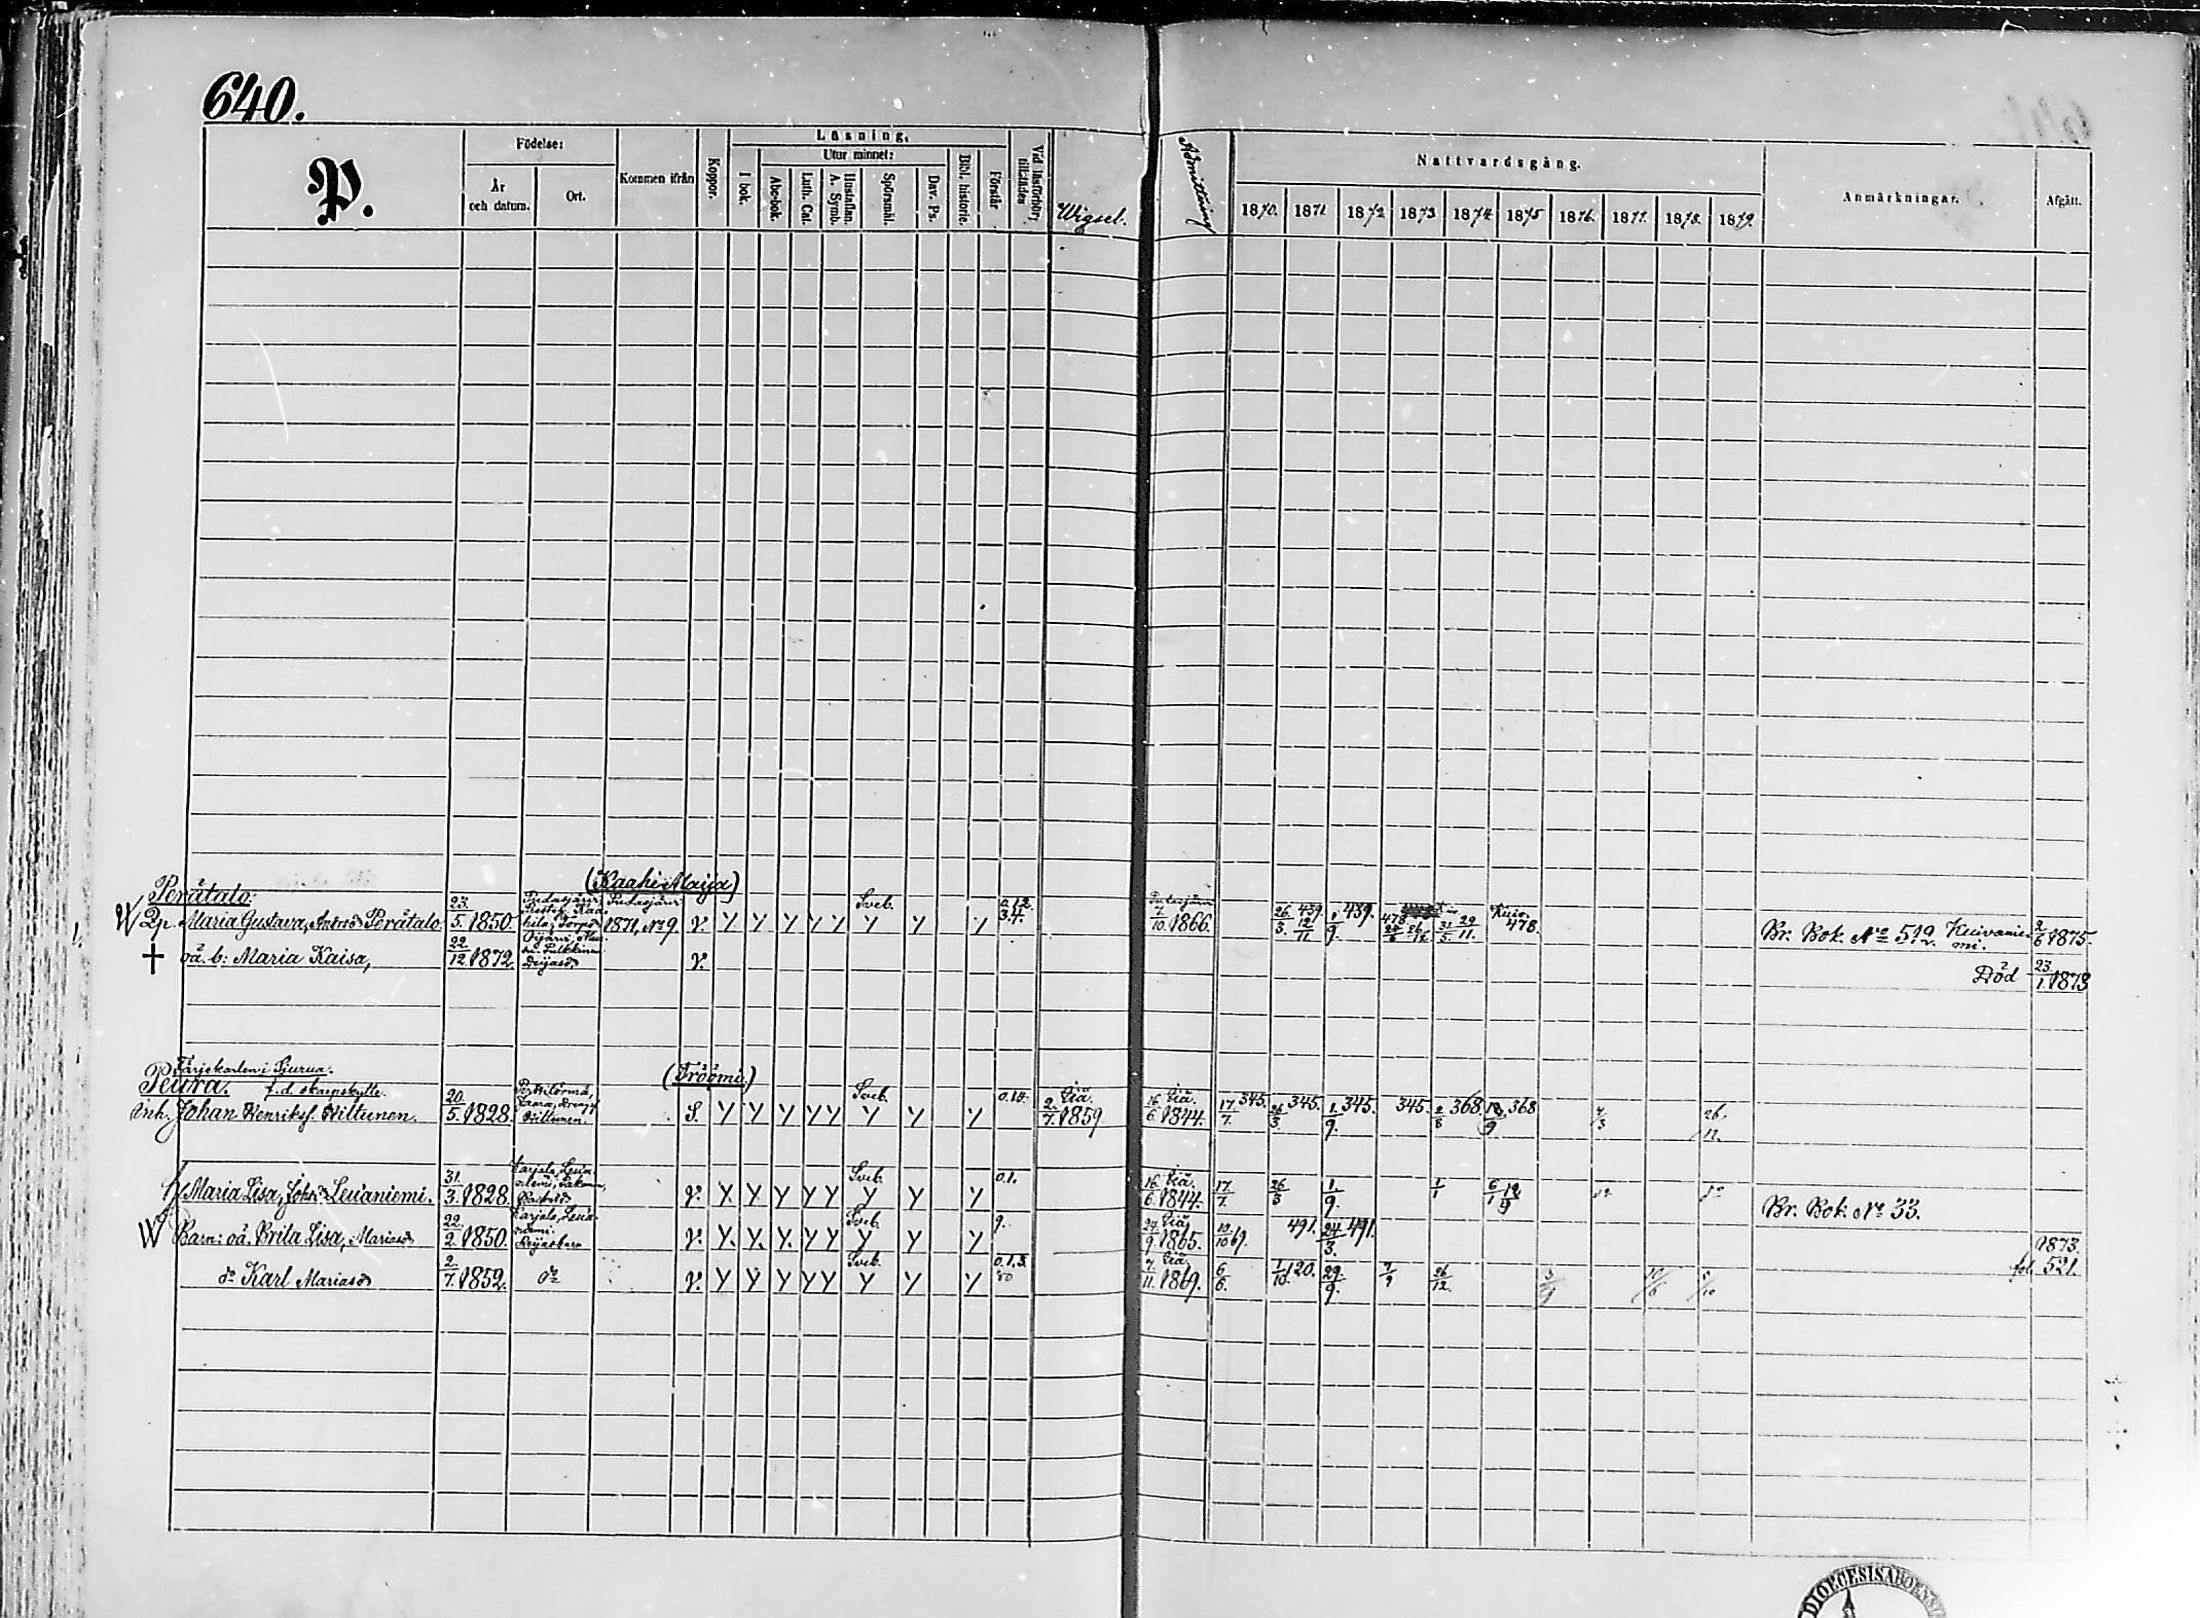 640.
P.
Födelse:
År och datum.
Ort.
Kommen ifrån
Koppor.
Läsning.
I bok.
Utur minnet:
Abc-bok.
Luth. Cat.
Hustaflan. A. Symb.
Spörsmål.
Dav. Ps.
Bibl. historie.
Förstår
Vid läsförhör, tillstädes
Wigsel.
Admittering
Nattvardsgång.
1870. 1871. 1872 1873 1874 1875 1876. 1877. 1878. 1879.
Anmärkningar.
Afgått.
(Kaahi Maija)
Perätalo:
W 2p. Maria Gustava, Perätalo. 23/5. 1850. Pudasjärvi 1871, No 9. v. Sveb. 10. 1866. 26/3. 439. 12/11. 1/9. 439. 478. 31/5. 29/11. 478. Br. Bok. No 519. Kuivaniemi. 2/6 1875.
† oä. b: Maria Kaisa, 22/12 1872. v. Död 23/1. 1873
Färjekarlen i Sjurua.
Peura. f.d. skarpskytte. (Tröömi)
Inh. Johan Henriksf. Wiltunen. 20/5. 1828. Wiltunen. S. Sveb. 0.10. 2/7. 1859 16/6. 1844. 17/7. 345. 26/3. 345. 1/9. 345. 345. 2/8 368. 368
h/ Maria Lisa, Johsdr Leuaniemi. 31/3. 1828. v. Sveb. 0.1. 16/6. 1844. 17/7. 26/3 1/9. 1/1 Br. Bok. No 33.
W Barn: oä. Brita Lisa, Mariasdr 22/2. 1850. v. Sveb. 9. 24/9. 1865. 10/10 69. 491. 24/3. 491. 1873. fol. 521.
do Karl Mariasson 2/7. 1852. do v. Sveb. 0.1.3. 7/11. 1869. 6/6. 1/10. 120. 29/9. 7/9 26/12.